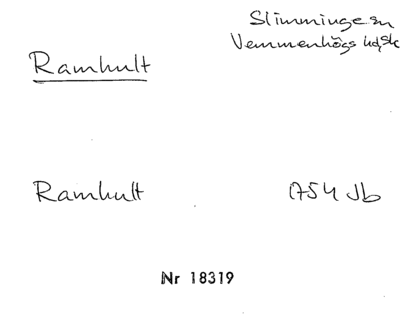 Slimminge sn
Vemmenhögs hd, Sk
Ramhult
Ramhult 1754 Jb
Nr 18319